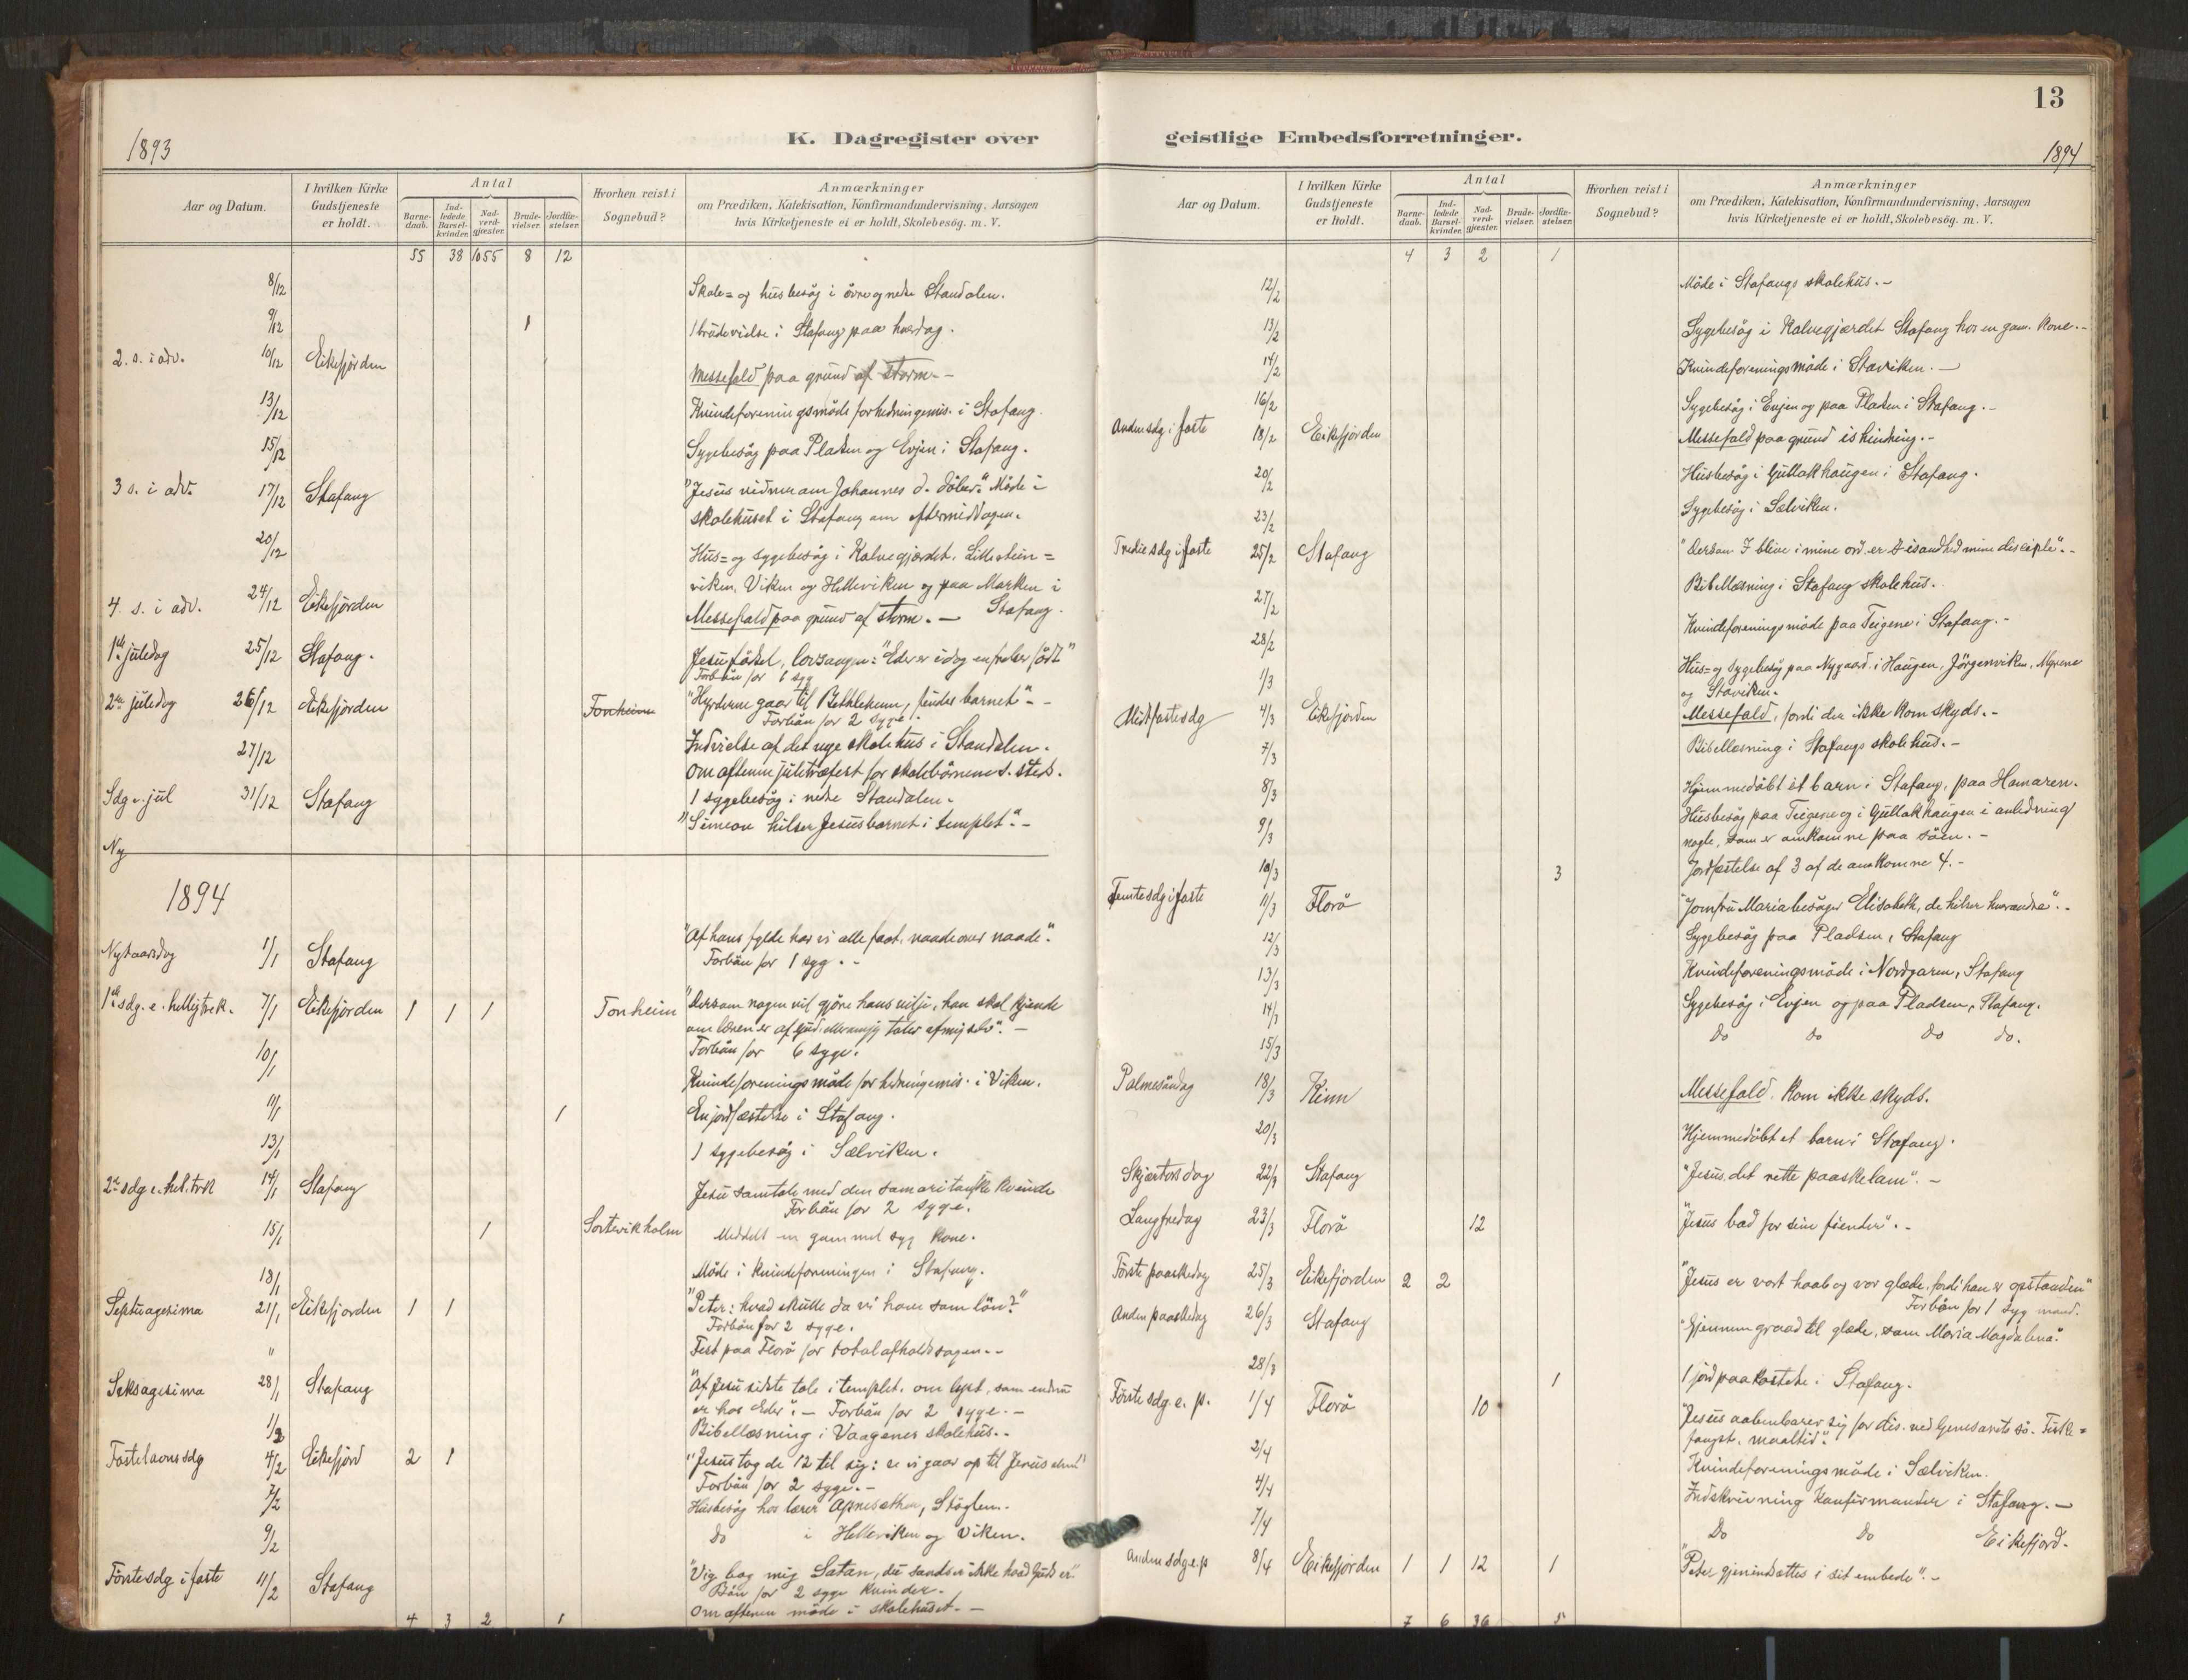 13
1893
K. Dagregister over
Aar og Datum.
I hvilken Kirke Gudstjeneste er holdt.
Antal
Barne-daab.
Ind-ledede Barsel-kvinder.
Nad-verd-gjæster.
Brude-vielser.
Jordfæ-stelser.
Hvorhen reist i Sognebud?
Anmærkninger
om Prædiken, Katekisation, Konfirmandundervisning, Aarsagen
hvis Kirketjeneste ei er holdt, Skolebesög. m. V.
55 38 1055 8 12
8/12 Skole= og husbesög i övre og nedre Standalen.
9/12 1 1 brudevielse i Stafang paa hverdag.
2. s. i adv. 10/12 Eikefjorden Messefald paa grund af storm. -
13/12 Kvindeforeningsmöde for hedningemis. i Stafang.
15/12 Sygebesög paa Pladsen og Evjen i Stafang.
3 s. i adv. 17/12 Stafang "Jesus vidner om Johannes d. döber." Möde i
skolehuset i Stafang om eftermiddagen.
20/12 Hus= og sygebesög i Kalvegjærdet,
viken, Viken og Helleviken og paa Marken i
Stafang.
4. s. i adv. 24/12 Eikefjorden Messefald paa grund af storm. -
1ste juledag 25/12 Stafang. Jesu födsel, lovsangen: "Eder er idag en frelser födt"
Forbön for 1 syg
2den juledag 26/12 Eikefjorden Tonheim "Hyrderne gaar til Bethlehem, finder barnet". -
Forbön for 2 syge.
27/12 Indvielse af det nye skolehus i Standalen.
Om aftenen juletræfest for skolebörnene s. steds.
1 sygebesög i nedre Standalen.
Sdg e. jul 31/12 Stafang "Simeon hilser Jesusbarnet i templet". -
Ny
1894
Nytaarsdag 1/1 Stafang "Af hans fylde har vi alle faat, naade over naade".
Forbön for 1 syg. -
1ste sdg. e. helligtrek. 7/1 Eikefjorden 1 1 1 Tonheim "Dersom nogen vil gjöre hans vilje, han skal kjende
om læren er af Gud, eller om jeg taler af mig selv". -
Forbön for 6 syge.
10/1 Kvindeforeningsmöde for hedningemis. i Viken.
11/1 1 En jordfæstelse i Stafang.
13/1 1 sygebesög i Sælviken.
2den sdg e. hel. trk 14/1 Stafang Jesu samtale med den samaritanske kvinde
Forbön for 2 syge.
15/1 1 Sortevikholm Meddelt en gammel syg kone.
18/1 Möde i kvindeforeningen i Stafang.
Septuagesima 21/1 Eikefjorden 1 1 "Peter: hvad skulle da vi have som lön?"
Forbön for 2 syge.
" Fest paa Florö for totalafholdssagen. -
Seksagesima 28/1 Stafang "Af Jesu sidste tale i templet, om lyset, som endnu
er hos Eder". - Forbön for 2 syge. -
1/2 Bibellæsning i Vaagenes skolehus. -
Fastelavnssdg 4/2 Eikefjord 2 1 "Jesus tog de 12 til sig: se vi gaar op til Jerusalem"
Forbön for 2 syge. -
7/2 Husbesög hos lærer
9/2 do i Helleviken og Viken.
Förste sdg i faste 11/2 Stafang "Vig bag mig Satan, du sandser ikke hvad Guds er"
Bön for 2 syge kvinder.
Om aftenen möde i skolehuset. -
4 3 2 1
geistlige Embedsforretninger.
1894
Aar og Datum.
I hvilken Kirke Gudstjeneste er holdt.
Antal
Barne-daab.
Ind-ledede Barsel-kvinder.
Nad-verd-gjæster.
Brude-vielser.
Jordfæ-stelser.
Hvorhen reist i Sognebud?
Anmærkninger
om Prædiken, Katekisation, Konfirmandundervisning, Aarsagen
hvis Kirketjeneste ei er holdt, Skolebesög. m. V.
4 3 2 1
12/2 Möde i Stafangs skolehus. -
13/2 Sygebesög i Kalvegjærdet Stafang hos en gam. kone. -
14/2 Kvindeforeningsmöde i Staviken. -
16/2 Sygebesög i Evjen og paa Pladsen i Stafang. -
Anden sdg i faste 18/2 Eikefjorden Messefald paa grund ishindring. -
20/2 Husbesög i Gullakhaugen i Stafang.
23/2 Sygebesög i Sælviken.
Tredie sdg i faste 25/2 Stafang "Dersom I blive i mine ord, er I i sandhed mine disciple". -
27/2 Bibellæsning i Stafang skolehus.
28/2 Kvindeforeningsmöde paa Teigene i Stafang. -
1/3 Hus= og sygebesög paa Nygaard, i Haugen, Jörgenviken, Myrene
og Staviken.
Midfastesdg 4/3 Eikefjorden Messefald, fordi der ikke kom skyds. -
7/3 Bibellæsning i Stafangs skolehus. -
8/3 Hjemmedöbt et barn i Stafang, paa Hamaren.
9/3 Husbesög paa Teigene og i Gullakhaugen i anledning
nogle, som er omkomne paa söen. -
10/3 3 Jordfæstelse af 3 af de omkomne 4. -
Femte sdg i faste 11/3 Florö "Jomfru Maria besöger Elisabeth, de hilser hverandre". -
12/3 Sygebesög paa Pladsen, Stafang
13/3 Kvindeforeningsmöde i Nordgaren, Stafang
14/3 Sygebesög i Evjen og paa Pladsen, Stafang.
15/3 do do do do.
Palmesöndag 18/3 Kinn Messefald. Kom ikke skyds.
20/3 Hjemmedöbt et barn i Stafang.
Skjærtorsdag 22/3 Stafang "Jesus, det rette paaskelam". -
Langfredag 23/3 Florö 12 "Jesus bad for sine fiender". -
Förste paaskedag 25/3 Eikefjorden 2 2 "Jesus er vort haab og vor glæde, fordi han er opstanden"
Forbön for 1 syg mand.
Anden paaskedag 26/3 Stafang "Gjennem graad til glæde, som Maria Magdalena".
28/3 1 1 jordpaakastelse i Stafang.
Förste sdg. e. p. 1/4 Florö 10 "Jesus aabenbarer sig for dis. ved Genesarets sö. Fiske=
fangst, maaltid".
2/4 Kvindeforeningsmöde i Sælviken.
4/4 Indskrivning konfirmander i Stafang. -
7/4 Do Do Eikefjord.
Anden sdg e. p 8/4 Eikefjorden 1 1 12 1 "Peter gjenindsættes i sit embede". -
7 6 36 5